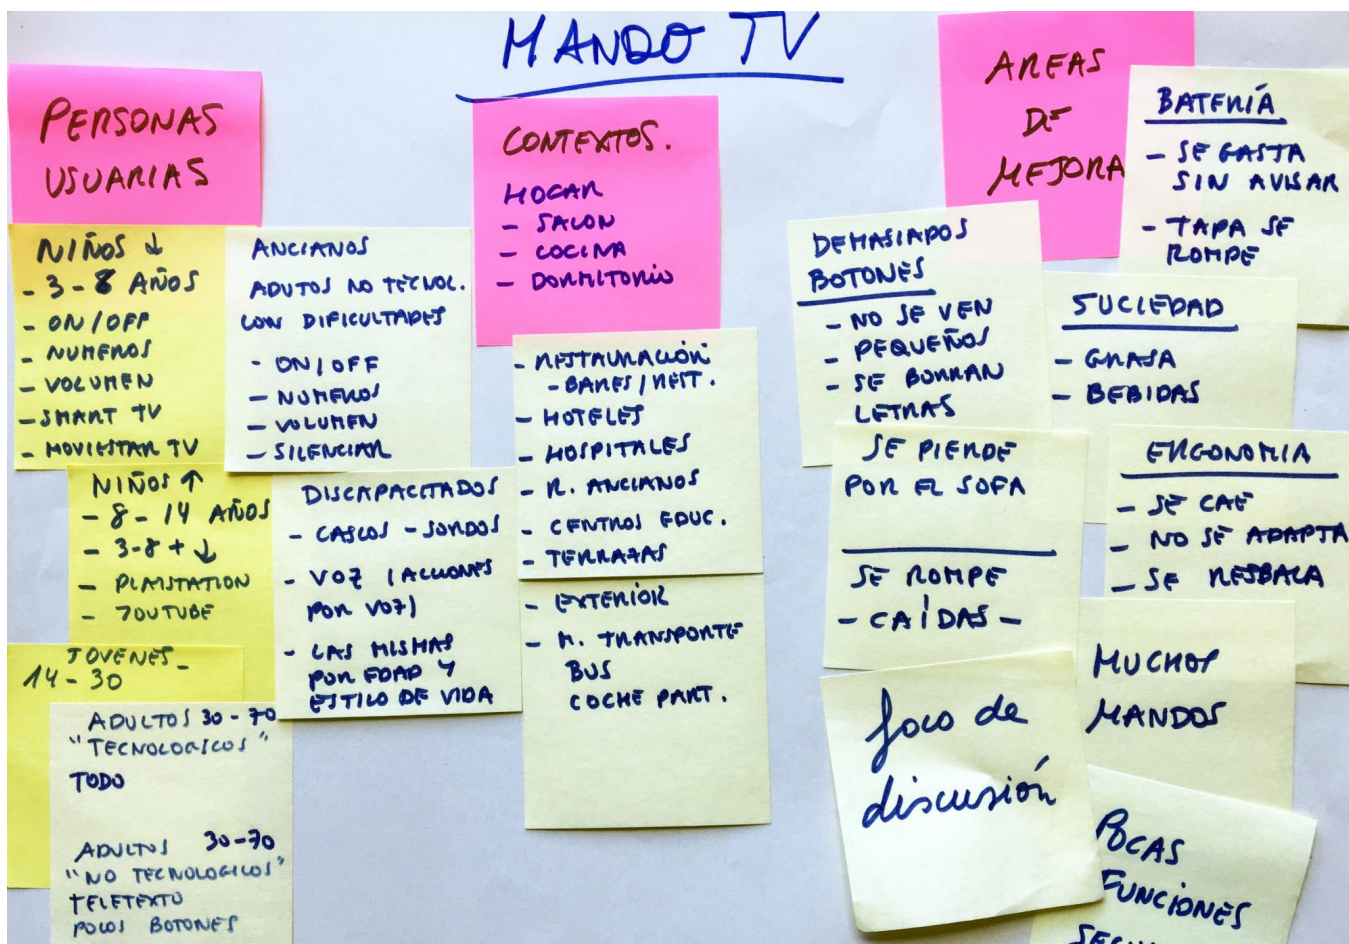 MANDO TV
PERSONAS
USUARIAS
NIÑOS ↓
- 3 - 8 AÑOS
- ON/OFF
- NUMEROS
- VOLUMEN
- SMART TV
- MOVIESTAR TV
NIÑOS ↑
- 8 - 14 AÑOS
- 3-8 + ↓
- PLAISTATION
- YOUTUBE
JOVENES -
14 - 30
ADULTOS 30 - 70
"TECNOLOGICOS"
TODO
ADULTOS 30-70
"NO TECNOLOGICOS"
TELETEXTO
POCOS BOTONES
ANCIANOS
ADUTOS NO TECNOL.
CON DIFICULTADES
- ON/OFF
- NUMEROS
- VOLUMEN
- SILENCIAR
DISCAPACITADOS
- CASCOS - SORDOS
- VOZ (ACCIONES
POR VOZ)
- LAS MISMAS
POR EDAD Y
ESTILO DE VIDA
CONTEXTOS.
HOGAR
- SALON
- COCINA
- DORMITORIO
- RESTAURACIÓN
- BARES/REST.
- HOTELES
- HOSPITALES
- R. ANCIANOS
- CENTROS EDUC.
- TERRAZAS
- EXTERIOR
- M. TRANSPORTE
BUS
COCHE PART.
AREAS
DE
MEJORA
BATERÍA
- SE GASTA
SIN AVISAR
- TAPA SE
ROMPE
DEMASIADOS
BOTONES
- NO SE VEN
- PEQUEÑOS
- SE BORRAN
LETRAS
SUCIEDAD
- GRASA
- BEBIDAS
SE PIERDE
POR EL SOFA
SE ROMPE
- CAÍDAS -
ERGONOMIA
- SE CAE
- NO SE ADAPTA
- SE RESBALA
MUCHOS
MANDOS
foco de
discusión
POCAS
FUNCIONES